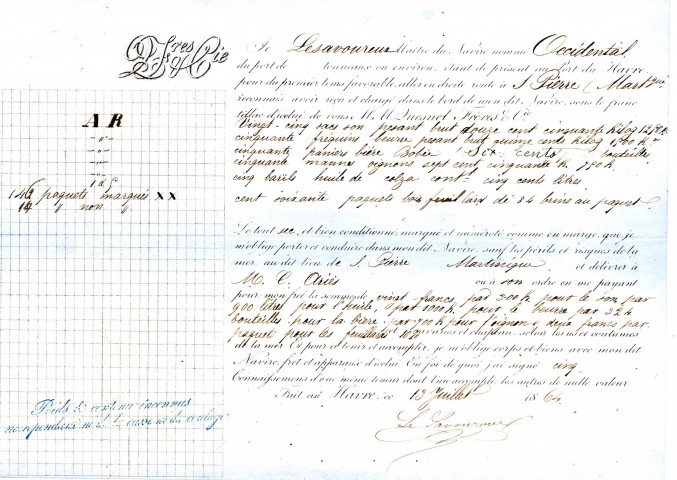 Qfres & Cie
AR
1 à 5
146 paquets marqués XX
14 " non "
Poids & contenu inconnus
ne répondant ni de casse ni du coulage
Je Lesavoureux Maître du Navire nommé Occidental
du port de tonneaux ou environ, étant de présent au Port du Havre
pour du premier tems favorable, aller en droite route à St Pierre (Mart que
reconnais avoir reçu et chargé dans le bord de mon dit Navire, sous le franc
tillac d'icelui de vous M.M. Quesnel Frères & Cie
Vingt-cinq sacs son pesant brut douze cent cinquante Kilog 1250 K
cinquante fréquins beurre pesant brut quinze cents Kilog 1500 K
cinquante paniers bière Bobée Six Cents bouteilles
cinquante manne oignons sept cent cinquante K 750 K
cinq barils huile de colza cont cinq cents litres
cent soixante paquets bois feuillard de 84 brins au paquet
Le tout sec, et bien conditionné, marqué et numéroté comme en marge, que je
m'oblige porter et conduire dans mon dit Navire, sauf les périls et risques de la
mer au dit lieu de St Pierre Martinique et délivrer à
M. C. Ariès ou à son ordre en me payant
pour mon fret la somme de vingt francs par 300 K pour le son par
900 litres pour l'huile, par 1000 K pour le beurre par 324
bouteilles pour la bière par 700 K pour l'oignon, deux francs par
paquet pour les feuillards 10% avaries et chapeau selon les us et coutumes
de la mer Et pour ce tenir et accomplir, je m'oblige corps et biens avec mon dit
Navire fret et apparaux d'icelui En foi de quoi j'ai signé cinq
Connaissemens d'une même teneur dont l'un accompli, les autres de nulle valeur
Fait au Havre ce 13 Juillet 1864
Le Savoureux